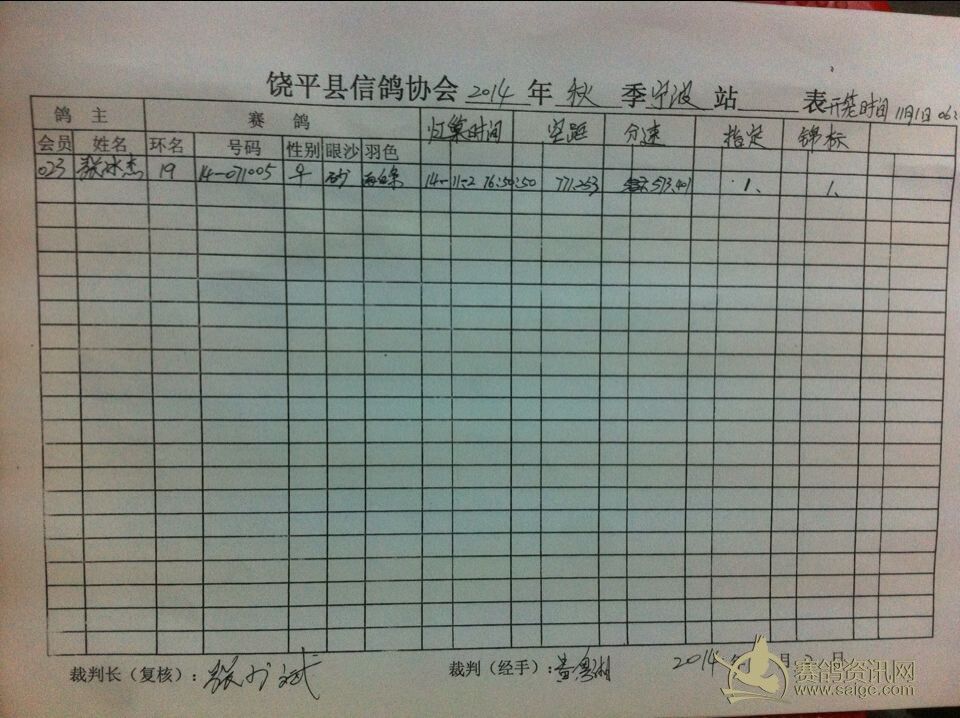 饶平县信鸽协会 2014 年 秋 季 宁波 站 表 开笼时间 11月1日 06:
鸽 主 赛 鸽 归巢时间 空距 分速 指定 锦标
会员 姓名 环名 号码 性别 眼沙 羽色
023 张冰杰 19 14-071005 平 砂 14-11-2 16:50:50 771.253 573.401 1、 1、
裁判长（复核）： 裁判（经手）： 2014 年 月 2 日
赛鸽资讯网
www.saigc.com